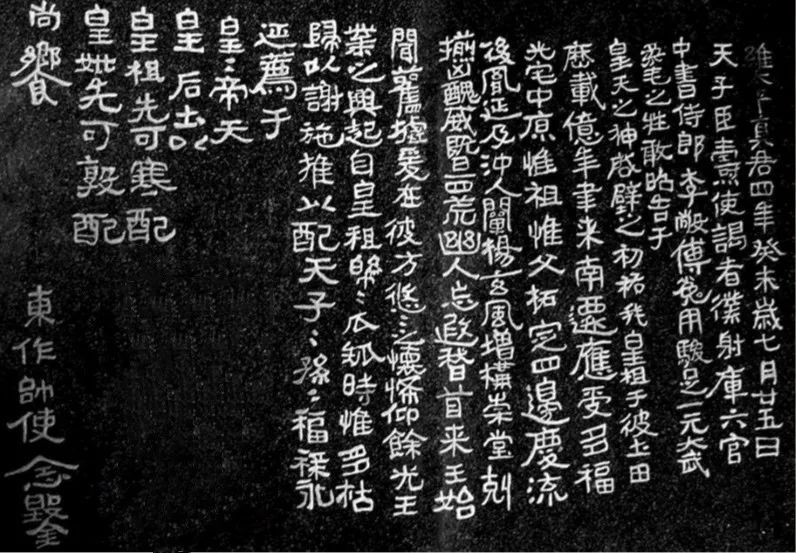 維太平真君四年癸未歲七月廿五日
天子臣燾使謁者僕射庫六官
中書侍郎李敞傅㝹用駿足一元大武
柔毛之牲敢昭告于
皇天之神啟辟之初祐我皇祖于彼土田
歷載億年聿來南遷應受多福
光宅中原惟祖惟父拓定四邊慶流
後胤延及沖人闡楊玄風增構崇堂剋
揃凶醜威暨四荒幽人忘遐稽首来王始
聞舊墟爰在彼方悠〻之懷希仰餘光王
業之興起自皇祖綿〻瓜瓞時惟多祜
歸以謝施推以配天子〻孫〻福祿永
延薦于
皇〻帝天
皇 后土以
皇祖先可寒配
皇妣先可敦配
尚饗
東作帥使念鑿